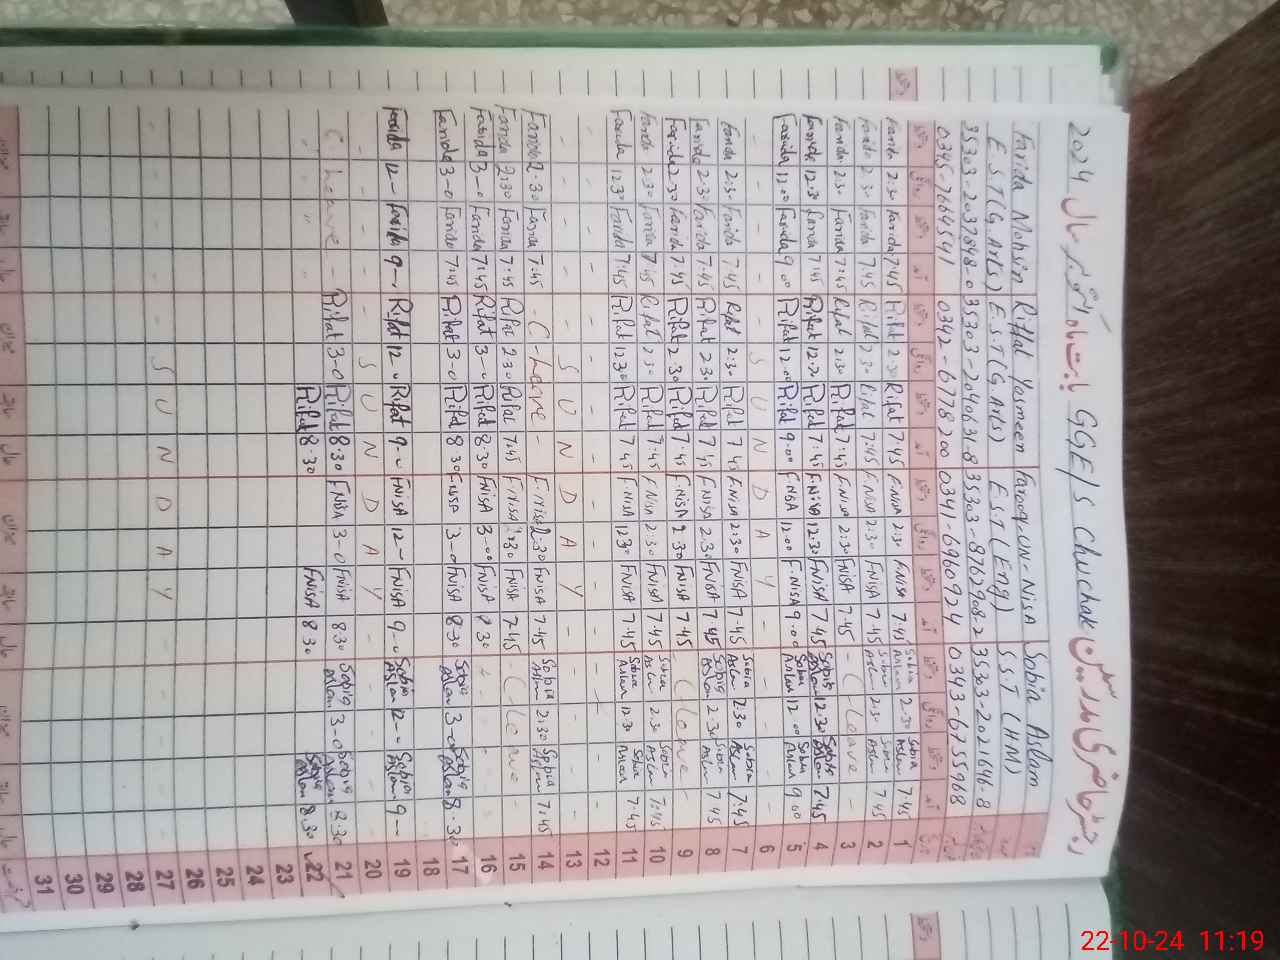 رجسٹر حاضری مدرسین GGE/S Chuchak بابت ماہ اکتوبر سال 2024
Farida Mohsin Riffat Yasmeen Farooq-UN-NISA Sobia Aslam
E.S.T(G.Arts) E.S.T(G.Arts) E.S.T(Eng) S.S.T(HM)
35303-2037848-0 35303-2040631-8 35303-8762908-2 35303-2021646-8
0345-7664541 0342-6778200 0341-6960924 0343-6755968
Farida 2:30 Farida 7:45 Rifat 2:30 Rifat 7:45 FNISA 2:30 FNISA 7:45 Sobia Aslam 2.30 Sobia Aslam 7.45 1
Farida 2:30 Farida 7:45 Rifat 2:30 Rifat 7:45 FNISA 2:30 FNISA 7:45 Sobia Aslam 2.30 Sobia Aslam 7.45 2
Farida 2:30 Farida 7:45 Rifat 2:30 Rifat 7:45 FNISA 2:30 FNISA 7.45 - C - Leave - 3
Farida 12.30 Farida 7:45 Rifat 12:30 Rifat 7:45 FNISA 12.30 FNISA 7.45 Sobia Aslam 12.30 Sobia Aslam 7.45 4
Farida 12.00 Farida 9.00 Rifat 12.00 Rifat 9.00 FNISA 12.00 FNISA 9.00 Sobia Aslam 12.00 Sobia Aslam 9.00 5
- - - - - S U N D A Y - - - - 6
Farida 2:30 Farida 7.45 Rifat 2:30 Rifat 7.45 FNISA 2:30 FNISA 7.45 Sobia Aslam 2.30 Sobia Aslam 7:45 7
Farida 2:30 Farida 7:45 Rifat 2.30 Rifat 7:45 FNISA 2.30 FNISA 7.45 Sobia Aslam 2.30 Sobia Aslam 7.45 8
Farida 2.30 Farida 7:45 Rifat 2.30 Rifat 7.45 FNISA 2.30 FNISA 7.45 C Leave - 9
Farida 2:30 Farida 7:45 Rifat 2:30 Rifat 7:45 FNISA 2.30 FNISA 7.45 Sobia Aslam 2.30 Sobia Aslam 7:45 10
Farida 12.30 Farida 7:45 Rifat 12.30 Rifat 7.45 FNISA 12.30 FNISA 7.45 Sobia Aslam 12.30 Sobia Aslam 7.45 11
12
- - - - - S U N D A Y - - - - 13
Farida 2.30 Farida 7:45 - C - Leave - FNISA 2.30 FNISA 7.45 Sobia Aslam 2:30 Sobia Aslam 7:45 14
Farida 2:30 Farida 7:45 Rifat 2:30 Rifat 7:45 FNISA FNISA 7.45 - C - Leave - 15
Farida 3-0 Farida 7:45 Rifat 3-0 Rifat 8:30 FNISA 3-00 FNISA 8.30 16
Farida 3-0 Farida 7:45 Rifat 3-0 Rifat 8.30 FNISA 3-0 FNISA 8.30 Sobia Aslam 3-0 Sobia Aslam 8.30 17
18
Farida 12- Farida 9- Rifat 12-0 Rifat 9-0 FNISA 12- FNISA 9-0 Sobia Aslam 12-0 Sobia Aslam 9- 19
- - - - - S U N D A Y - - - - 20
C - Leave - Rifat 3-0 Rifat 8.30 FNISA 3-0 FNISA 8.30 Sobia Aslam 3-0 Sobia Aslam 8.30 21
" " " Rifat 8.30 FNISA 8.30 Sobia Aslam 8.30 22
23
24
25
26
- - - - - S U N D A Y - - - - 27
28
29
30
31
22-10-24 11:19